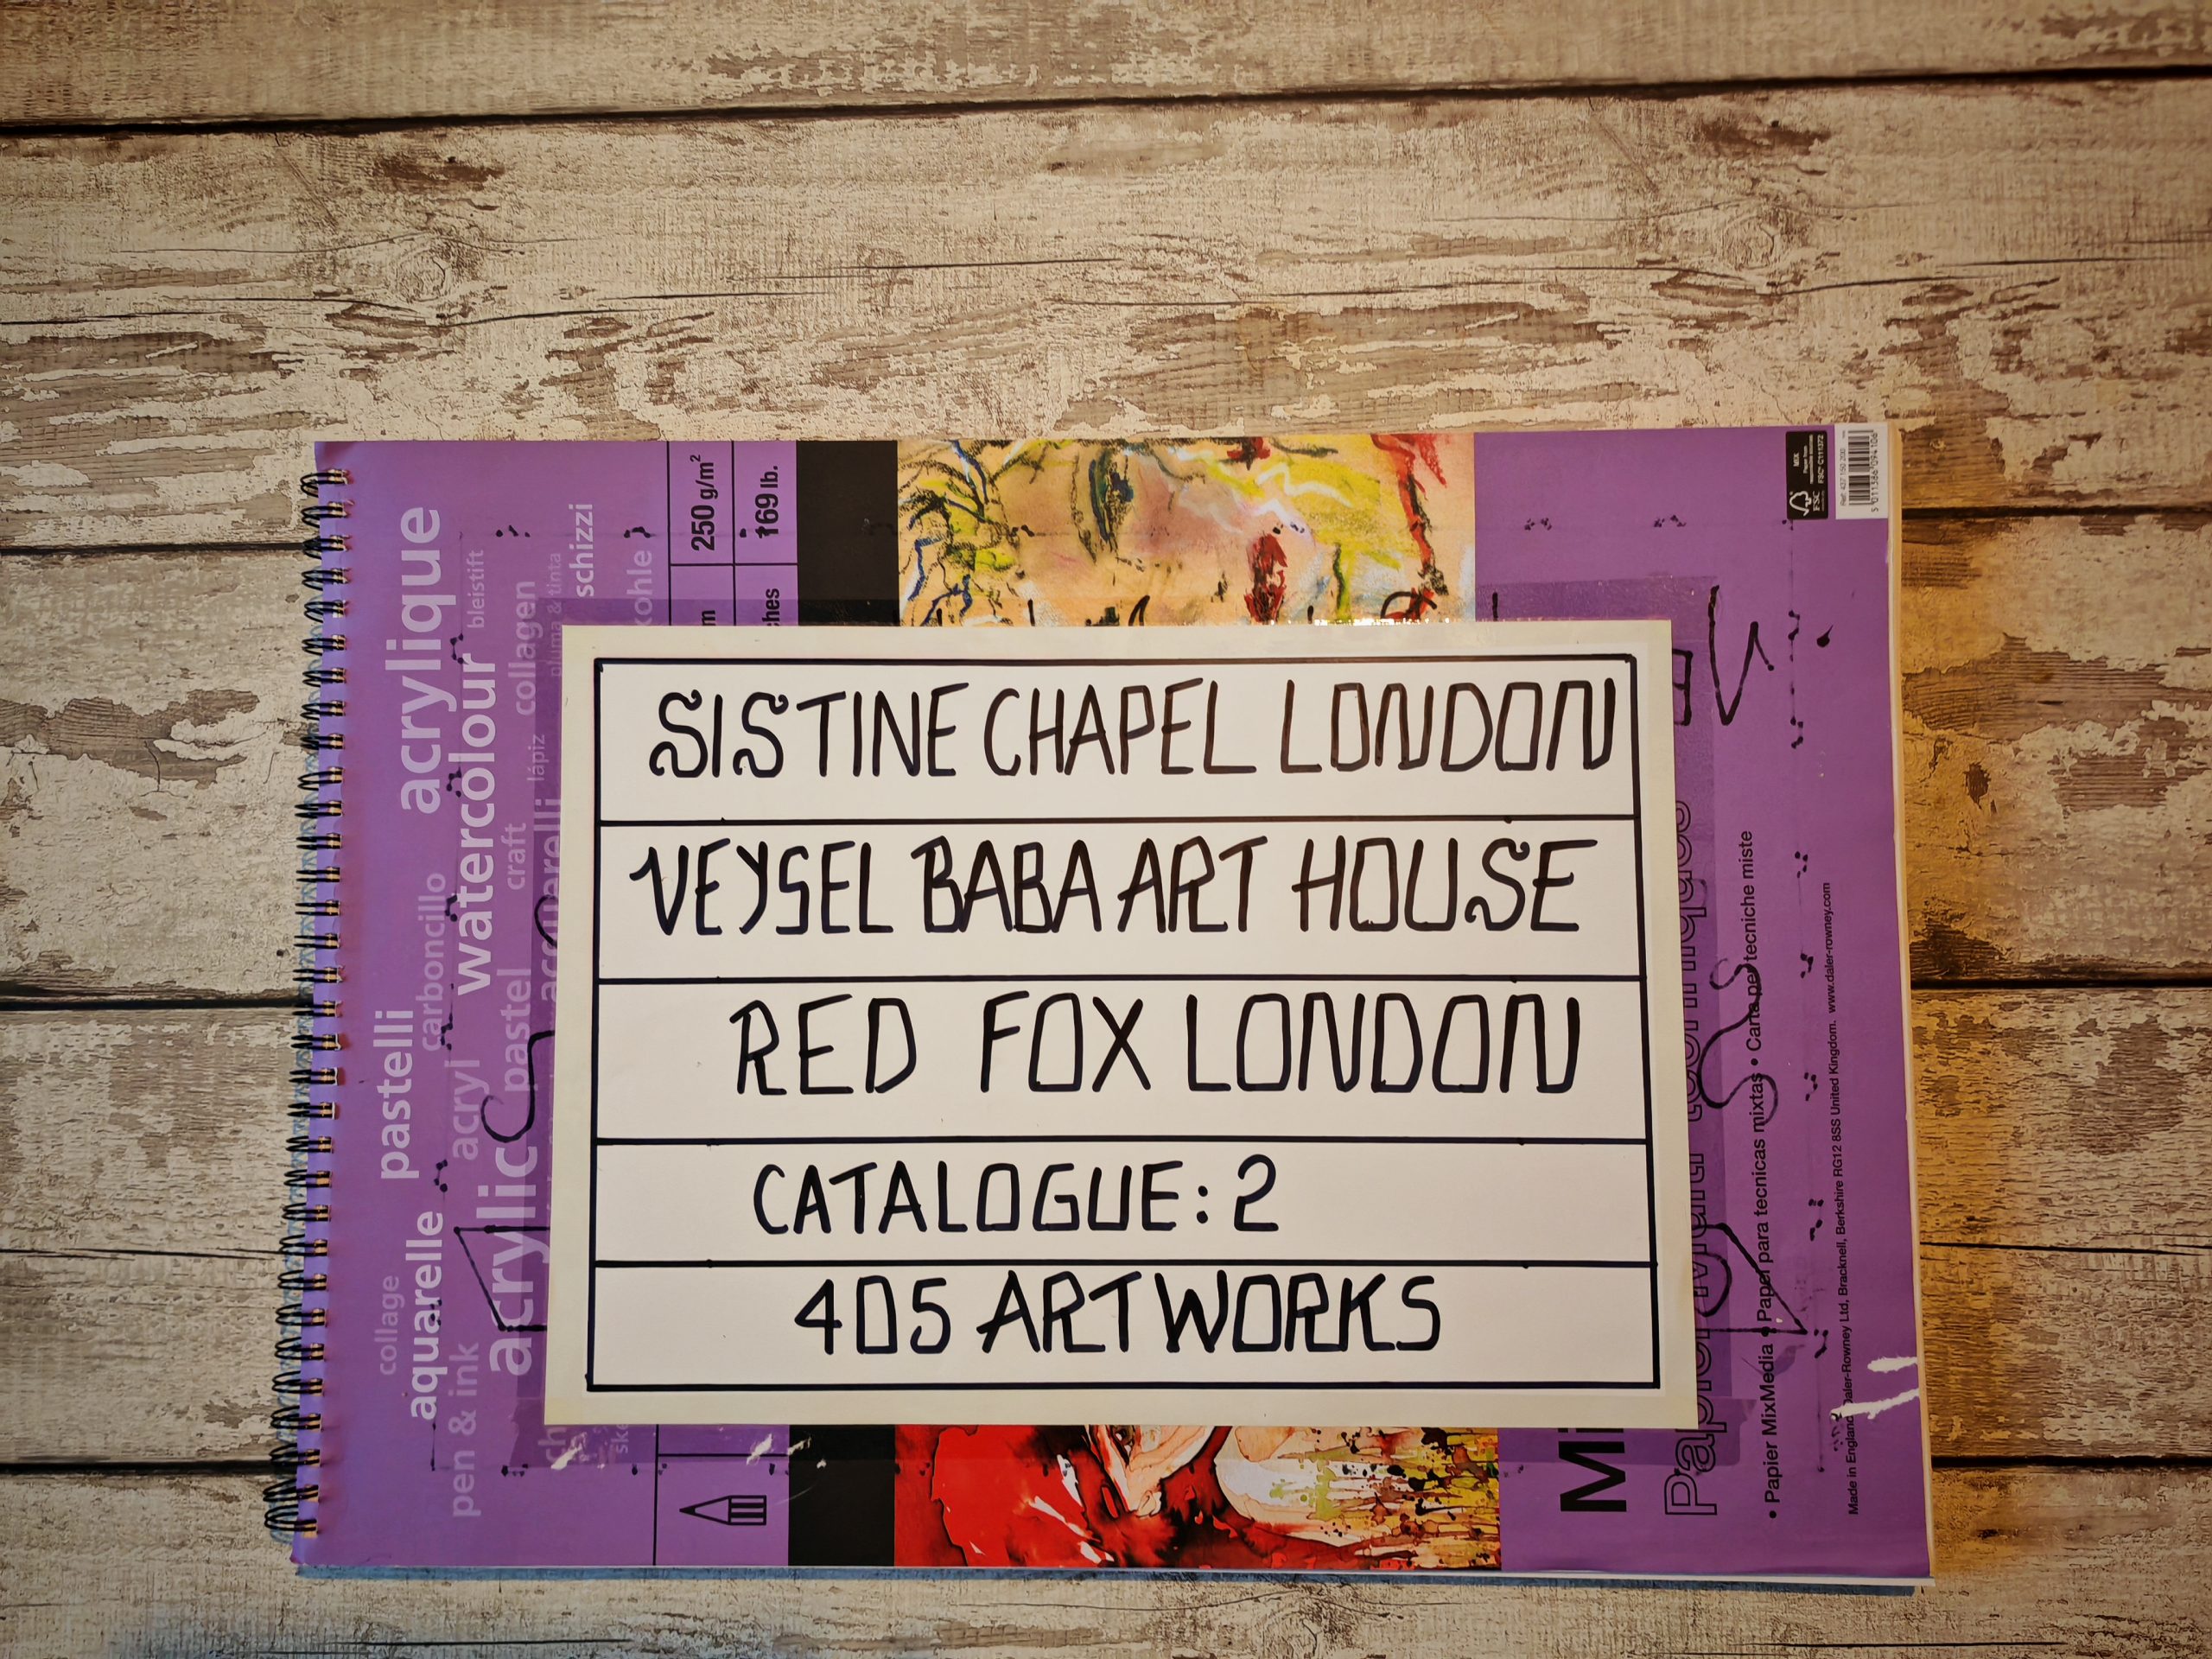 SISTINE CHAPEL LONDON
VEYSEL BABA ART HOUSE
RED FOX LONDON
CATALOGUE: 2
405 ARTWORKS
acrylique
bleistift
watercolour
collagen
pluma & tinta
schizzi
250 g/m²
169 lb.
lápiz
craft
carboncillo
pastelli
pastel
acryl
acrylic
collage
aquarelle
pen & ink
• Papier MixMedia • Papel para tecnicas mixtas • Carta per tecniche miste
Made in England Daler-Rowney Ltd, Bracknell, Berkshire RG12 8SS United Kingdom. www.daler-rowney.com
MIX
FSC
FSC® C111372